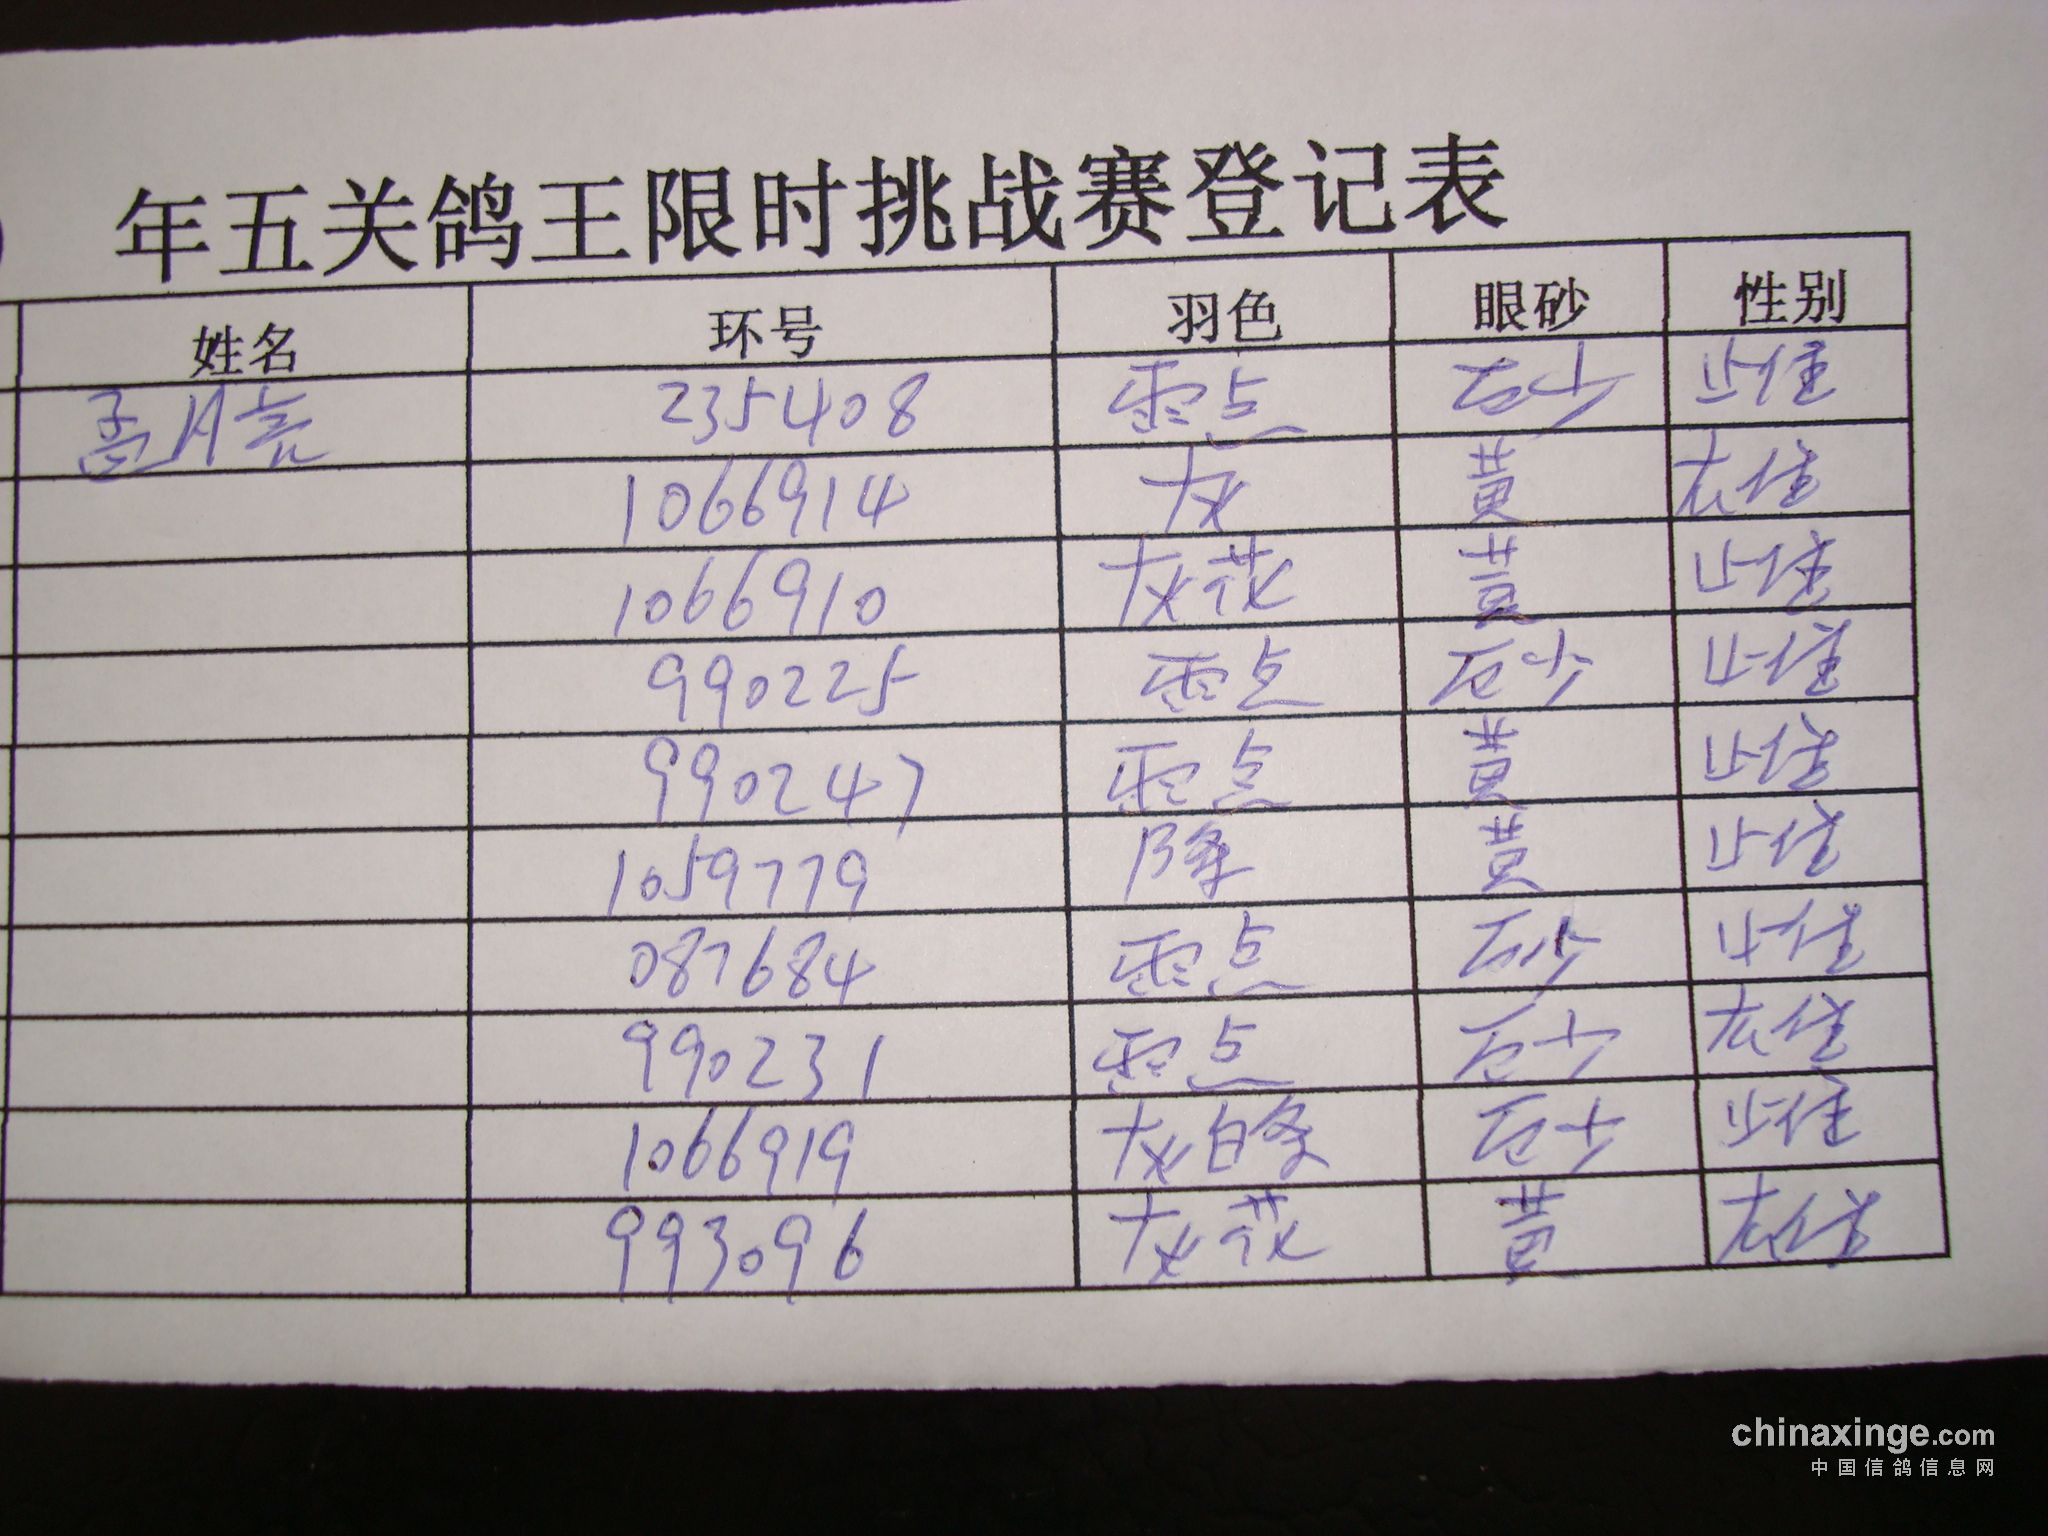 年五关鸽王限时挑战赛登记表
姓名 环号 羽色 眼砂 性别
孟月亮 235408 雨点 雌
1066914 灰 黄 雄
1066910 灰花 黄 雌
990225 雨点 砂 雌
990247 雨点 黄 雌
1059779 绛 黄 雌
087684 雨点 砂 雌
990231 雨点 砂 雄
1066919 灰白条 砂 雌
993096 灰花 黄 雄
chinaxinge.com
中国信鸽信息网